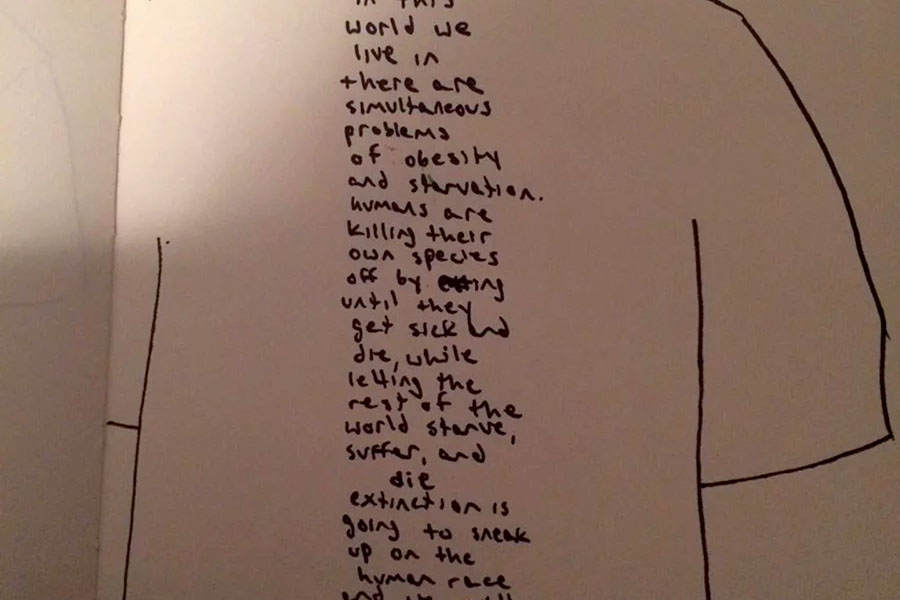 in this
world we
live in
there are
simultaneous
problems
of obesity
and starvation.
humans are
killing their
own species
off by eating
until they
get sick and
die, while
letting the
rest of the
world starve,
suffer, and
die
extinction is
going to sneak
up on the
human race
and